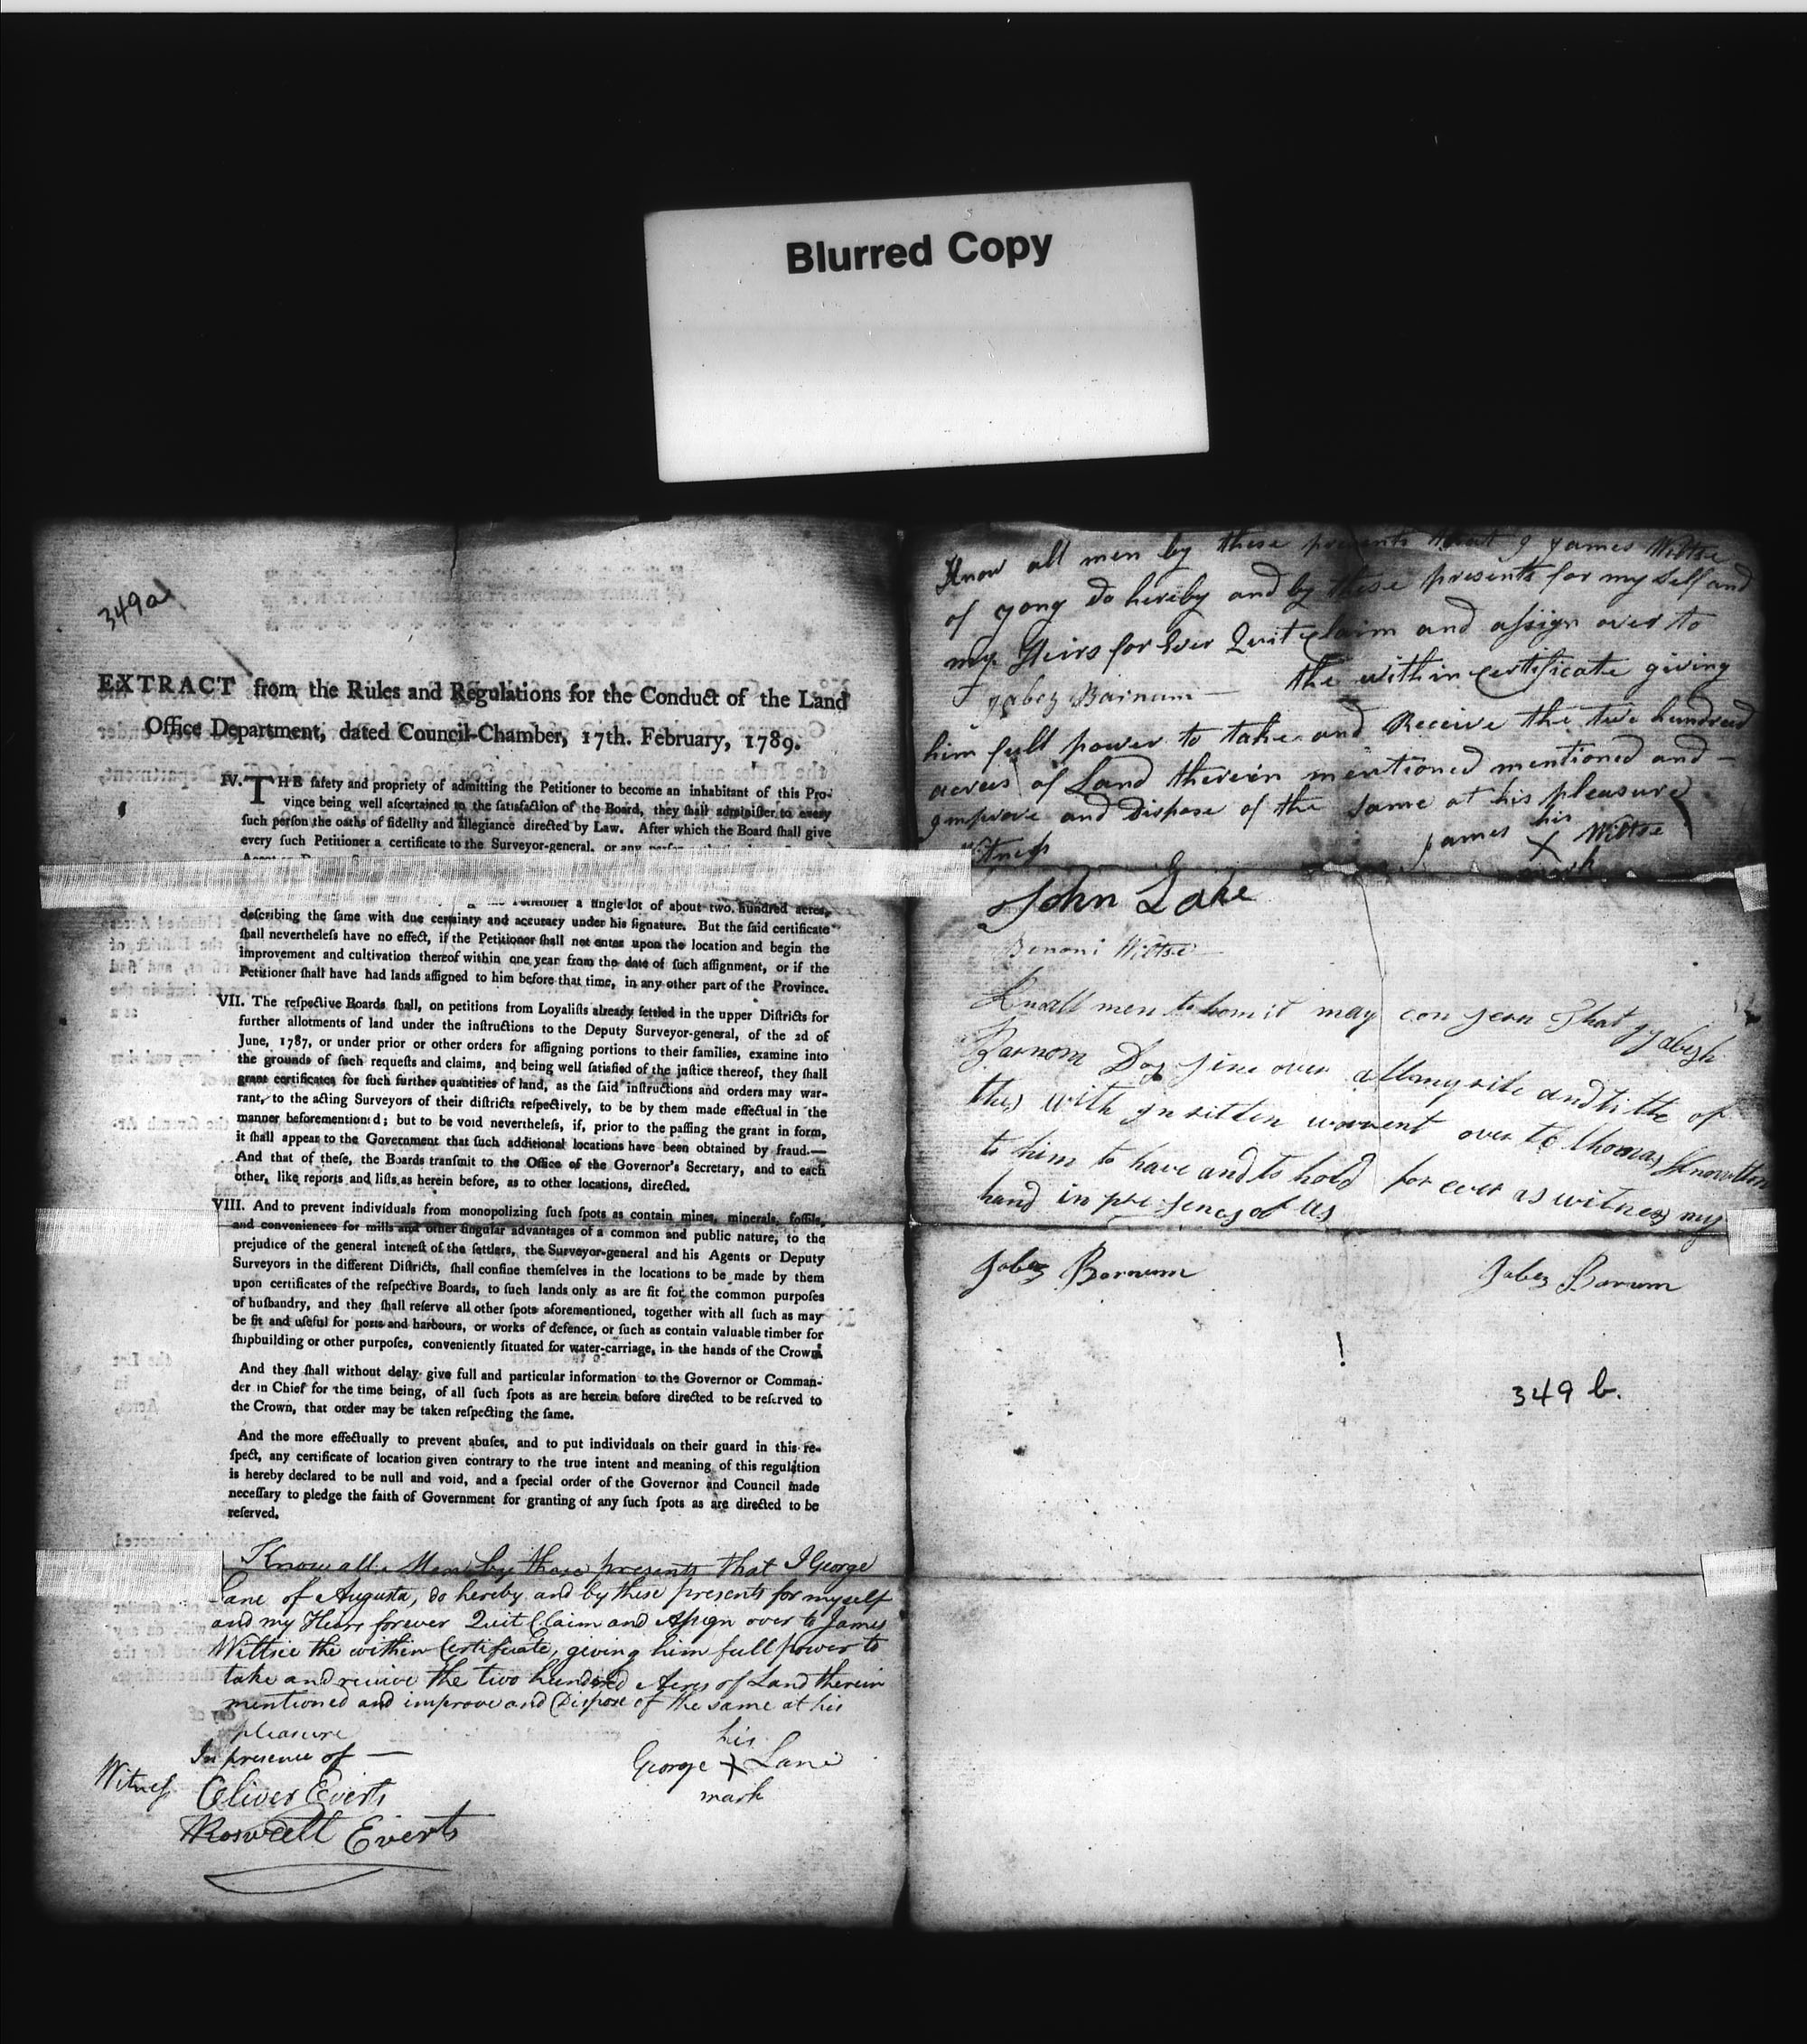 Blurred Copy
349a
EXTRACT from the Rules and Regulations for the Conduct of the Land
Office Department, dated Council-Chamber, 17th. February, 1789.
IV. THE ſafety and propriety of admitting the Petitioner to become an inhabitant of this Pro-
vince being well aſcertained to the ſatisfaction of the Board, they ſhall adminiſter to every
ſuch perſon the oaths of fidelity and allegiance directed by Law. After which the Board ſhall give
every ſuch Petitioner a certificate to the Surveyor-general, or any
Petitioner a ſingle lot of about two hundred acres,
deſcribing the ſame with due certainty and accuracy under his ſignature. But the ſaid certificate
ſhall nevertheleſs have no effect, if the Petitioner ſhall not enter upon the location and begin the
improvement and cultivation thereof within one year from the date of ſuch aſſignment, or if the
Petitioner ſhall have had lands aſſigned to him before that time, in any other part of the Province.
VII. The reſpective Boards ſhall, on petitions from Loyaliſts already ſettled in the upper Diſtricts for
further allotments of land under the inſtructions to the Deputy Surveyor-general, of the 2d of
June, 1787, or under prior or other orders for aſſigning portions to their families, examine into
the grounds of ſuch requeſts and claims, and being well ſatisfied of the juſtice thereof, they ſhall
grant certificates for ſuch further quantities of land, as the ſaid inſtructions and orders may war-
rant, to the acting Surveyors of their diſtricts reſpectively, to be by them made effectual in the
manner beforementioned; but to be void nevertheleſs, if, prior to the paſſing the grant in form,
it ſhall appear to the Government that ſuch additional locations have been obtained by fraud.—
And that of theſe, the Boards tranſmit to the Office of the Governor's Secretary, and to each
other, like reports and liſts as herein before, as to other locations, directed.
VIII. And to prevent individuals from monopolizing ſuch ſpots as contain mines, minerals, foſſils,
and conveniences for mills and other ſingular advantages of a common and public nature, to the
prejudice of the general intereſt of the ſettlers, the Surveyor-general and his Agents or Deputy
Surveyors in the different Diſtricts, ſhall confine themſelves in the locations to be made by them
upon certificates of the reſpective Boards, to ſuch lands only as are fit for the common purpoſes
of huſbandry, and they ſhall reſerve all other ſpots aforementioned, together with all ſuch as may
be fit and uſeful for ports and harbours, or works of defence, or ſuch as contain valuable timber for
ſhipbuilding or other purpoſes, conveniently ſituated for water-carriage, in the hands of the Crown.
And they ſhall without delay give full and particular information to the Governor or Comman-
der in Chief for the time being, of all ſuch ſpots as are herein before directed to be reſerved to
the Crown, that order may be taken reſpecting the ſame.
And the more effectually to prevent abuſes, and to put individuals on their guard in this re-
ſpect, any certificate of location given contrary to the true intent and meaning of this regulation
is hereby declared to be null and void, and a ſpecial order of the Governor and Council made
neceſſary to pledge the faith of Government for granting of any ſuch ſpots as are directed to be
reſerved.
Know all Men by these presents that I George
Lane of Augusta, do hereby and by these presents for myself
and my Heirs forever Quit Claim and Aſsign over to James
Wiltsie the within Certificate, giving him full power to
take and recieve the two hundred Acres of Land therein
mentioned and improve and Dispose of the same at his
pleasure
In presence of —
his
George X Lane
mark
Witneſs
Oliver Everts
Roswell Everts
Know all men by these presents that I James Wiltse
of yong do hereby and by these presents for my self and
my Heirs for Ever Quit Claim and aſsign over to
Jabez Barnum — the within Certificate giving
him full power to take and Receive the two hundred
acres of Land therein mentioned mentioned and —
Improve and Dispose of the same at his pleasure
Witneſs
his
James X Wiltse
mark
John Lake
Benoni Wiltse
may con sern that I Jabesh
Barnom Doz give over all my rite and title of
this with in ritten warrent over to thomas Knowlton
to him to have and to hold for ever as witnes my
hand in pre senes of us
Jabez Barnum
Jabez Barnum
349 b.